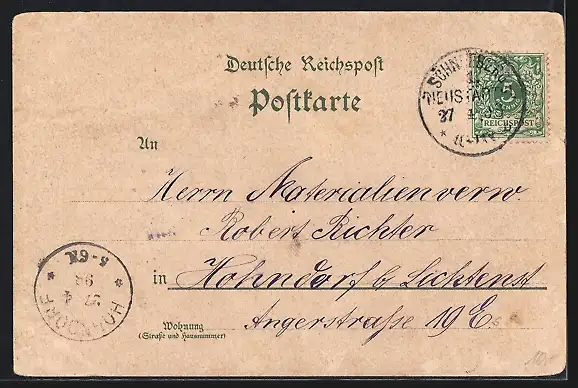 Deutsche Reichspost
Postkarte
SCHNEEBERG
NEUSTÄDTEL
27 4
REICHSPOST
5
An
Herrn Materialienverw.
Robert Richter
in Hohndorf b/Lichtenst
Angerstraße 19 E
Wohnung
(Straße und Hausnummer)
5-6N
98
27 4
HOHNDORF